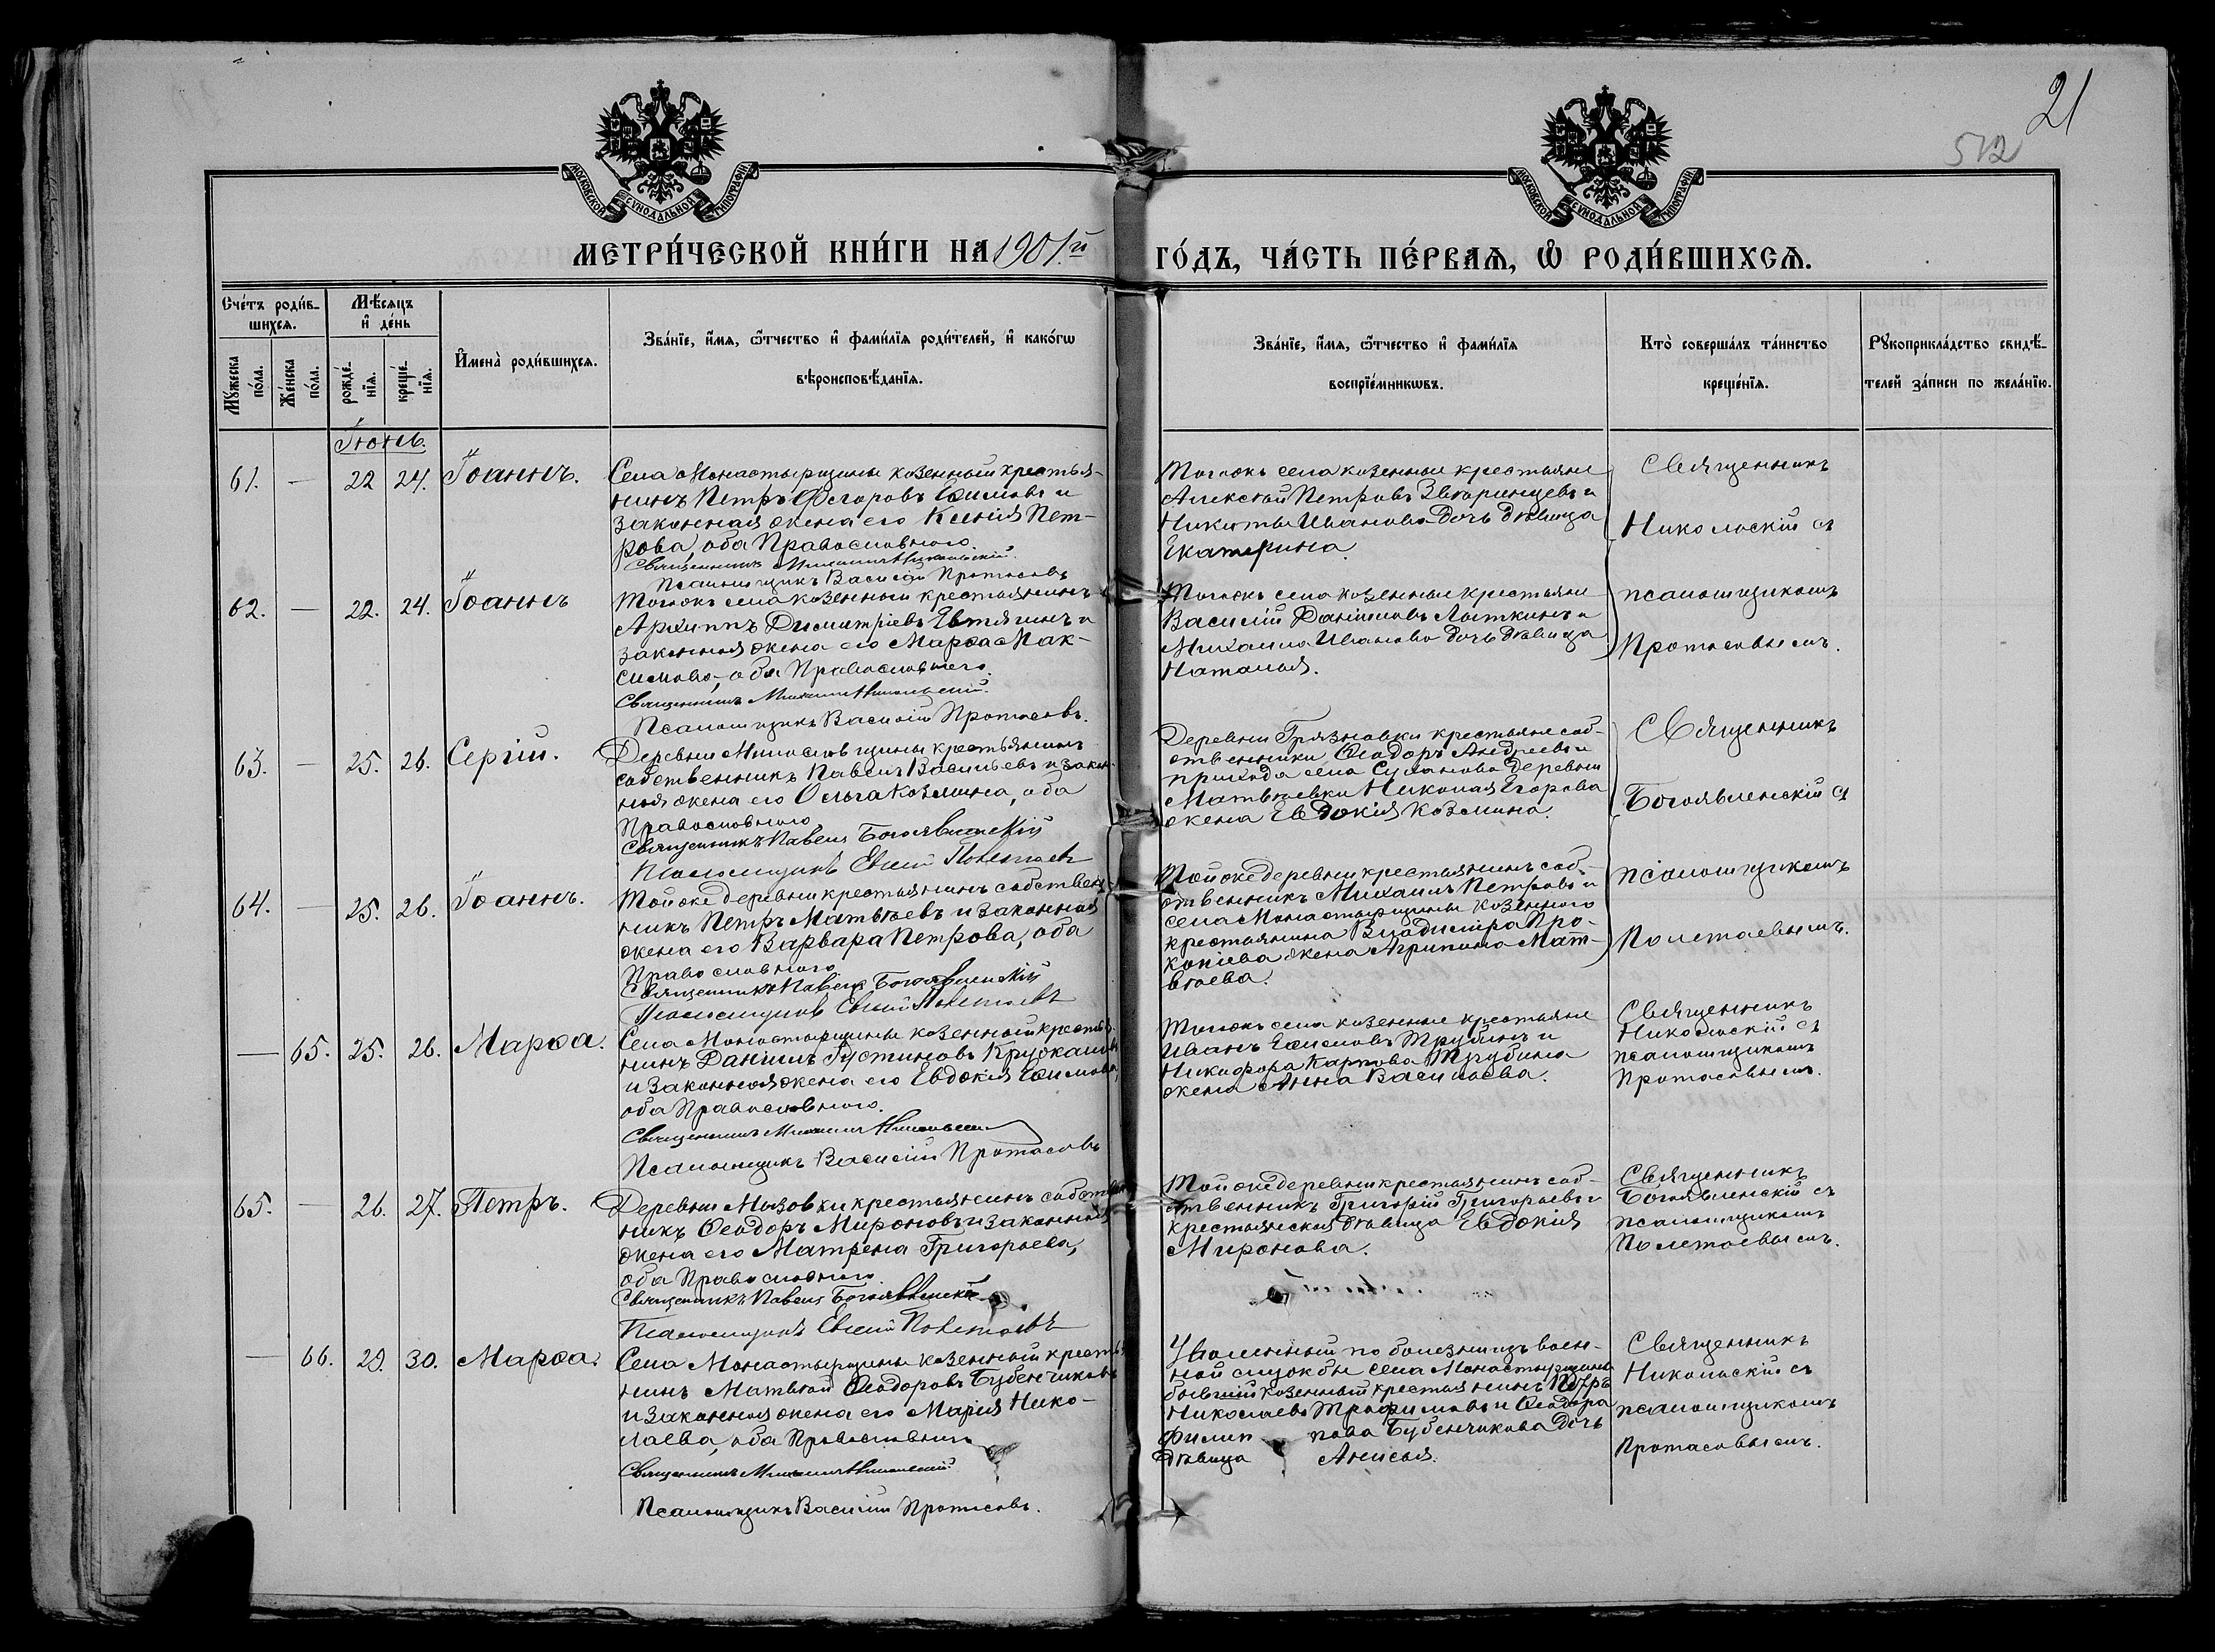 21
512
МОСКОВСКОЙ СѴНОДАЛЬНОЙ ТИПОГРАФІИ
МОСКОВСКОЙ СѴНОДАЛЬНОЙ ТИПОГРАФІИ
МЕТРИ́ЧЕСКОЙ КНИ́ГИ НА 1901.й ГО́ДЪ, ЧА́СТЬ ПЕ́РВАѦ, Ѽ РОДИ́ВШИХСѦ.
Сче́тъ роди́в-
шихсѧ.
Мѣ́сяцъ
и҆ де́нь
Мꙋ́жеска
по́ла.
Же́нска
по́ла.
рожде́-
нїѧ.
креще́-
нїѧ.
И҆мена̀ роди́вшихсѧ.
Зва́нїе, и҆́мѧ, ѻ҆́тчество и҆ фами́лїѧ роди́телей, и҆ како́гѡ
вѣроисповѣ́данїѧ.
Зва́нїе, и҆́мѧ, ѻ҆́тчество и҆ фами́лїѧ
воспрїе́мникѡвъ.
Кто̀ соверша́лъ та́инство
креще́нїѧ.
Рꙋкоприкла́дство свидѣ́-
телей за́писи по жела́нїю.
Іюнь.
61. — 22 24. Іоаннъ.
Села Монастырщины казенный крестья-
нинъ Петръ Егоровъ Ефимовъ и
законная жена его Ксенія Пет-
рова, оба Православного.
Священникъ Михаилъ Никольскій.
Псаломщикъ Василій Протасовъ
Тогожъ села казенные крестьяне
Алексѣй Петровъ Звѣринцевъ и
Никиты Иванова дочь дѣвица
Екатерина.
Священникъ
Никольскій съ
62. — 22. 24. Іоаннъ
Тогожъ села казенный крестьянинъ
Архиппъ Димитріевъ Евтягинъ и
законная жена его Марѳа Мак-
симова, оба Православного.
Священникъ Михаилъ Никольскій.
Псаломщикъ Василій Протасовъ.
Тогожъ села казенные крестьяне
Василій Даніиловъ Лыткинъ и
Михаила Иванова дочь дѣвица
Наталья.
псаломщикомъ
Протасовымъ.
63. — 25. 26. Сергій.
Деревни Милославщины крестьянинъ
собственникъ Павелъ Васильевъ и закон-
ная жена его Ольга Козмина, оба
Православного
Священникъ Павелъ Богоявленскій
Псаломщикъ Евгеній Полетаевъ
Деревни Грязновки крестьяне соб-
ственники Ѳеодоръ Андреевъ и
прихода села Суханова деревни
Матвѣевки Николая Егорова
жена Евдокія Козмина.
Священникъ
Богоявленскій съ
64. — 25. 26. Іоаннъ.
Тойже деревни крестьянинъ собствен-
никъ Петръ Матвѣевъ и законная
жена его Варвара Петрова, оба
Православного
Священникъ Павелъ Богоявленскій
Псаломщикъ Евгеній Полетаевъ
Тойже деревни крестьянинъ соб-
ственникъ Михаилъ Петровъ и
села Монастырщины казенного
крестьянина Владиміра Про-
копіева жена Агрипина Мат-
вѣева.
псаломщикомъ
Полетаевымъ.
— 65. 25. 26. Марѳа.
Села Монастырщины казенный крестья-
нинъ Даніилъ Густиновъ Кружалинъ
и законная жена его Евдокія Ефимова,
оба Православного.
Священникъ Михаилъ Никольскій
Псаломщикъ Василій Протасовъ
Тогожъ села казенные крестьяне
Иванъ Ефимовъ Трубинъ и
Никифора Карпова Трубина
жена Анна Васильева.
Священникъ
Никольскій съ
псаломщикомъ
Протасовымъ.
65. — 26. 27. Петръ.
Деревни Мызовки крестьянинъ собствен-
никъ Ѳеодоръ Мироновъ и законная
жена его Матрена Григорьева,
оба Православного
Священникъ Павелъ Богоявленскій
Псаломщикъ Евгеній Полетаевъ
Тойже деревни крестьянинъ соб-
ственникъ Григорій Григорьевъ и
крестьянская дѣвица Евдокія
Миронова.
Священникъ
Богоявленскій съ
псаломщикомъ
Полетаевымъ.
— 66. 29. 30. Марѳа.
Села Монастырщины казенный крестья-
нинъ Матвѣй Ѳеодоровъ Бубенчиковъ
и законная жена его Марія Нико-
лаева, оба Православного
Священникъ Михаилъ Никольскій
Псаломщикъ Василій Протасовъ.
Уволенный по болезни изъ воен-
ной службы села Монастырщины
бывшій казенный крестьянинъ Петръ
Николаевъ Трофимовъ и Ѳеодора
Филиппова Бубенчикова дочь
дѣвица Анисья.
Священникъ
Никольскій съ
псаломщикомъ
Протасовымъ.